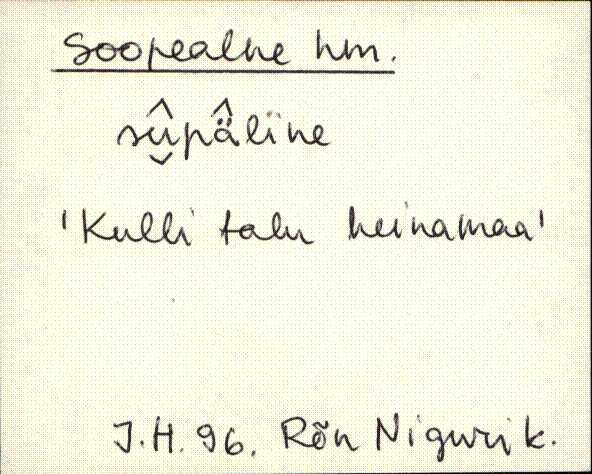 Soopealne hm.
sû̬pä̂line
'Kulli talu heinamaa'
J.H. 96. Rõn Nigurik.